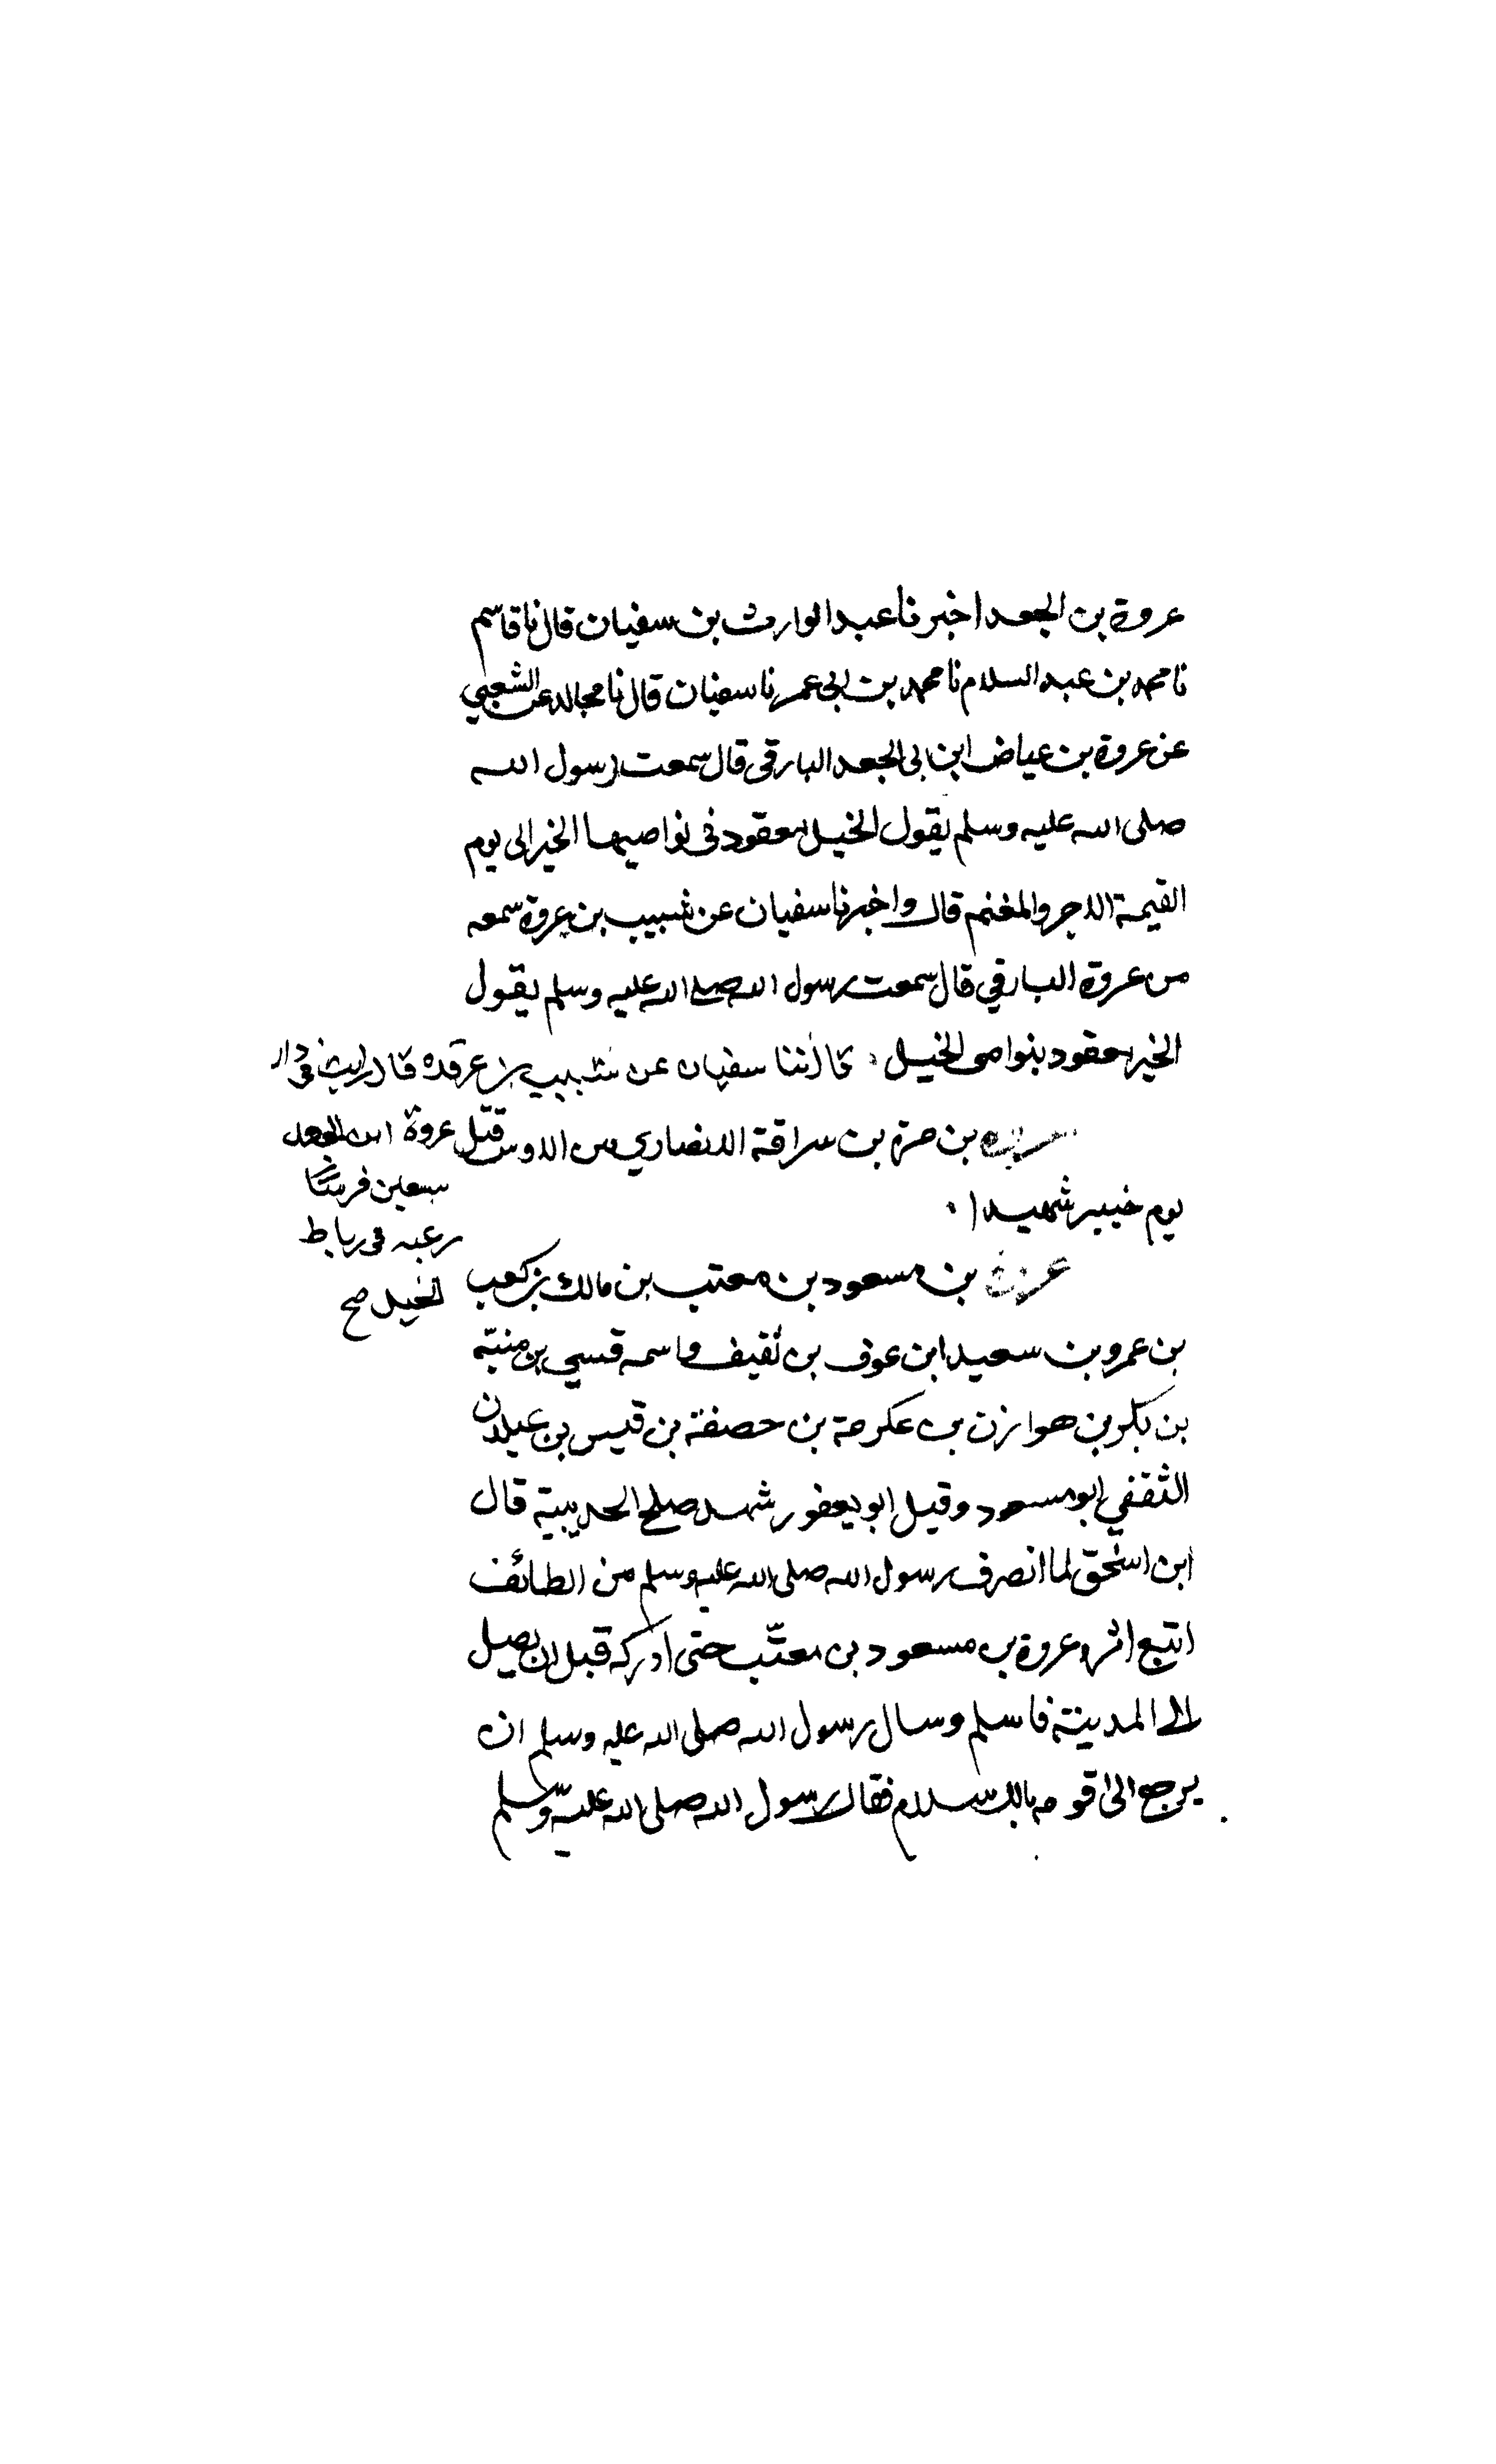 عروة بن الجعد اخبرنا عبد الوارث بن سفيان قال نا قاسم
نا محمد بن عبد السلام نا محمد بن ابى عمر نا سفيان قال نا مجالد عن الشعبي
عن عروة بن عياض ابن ابى الجعد البارقى قال سمعت رسول الله
صلى الله عليه وسلم يقول الخيل معقود فى نواصيها الخير الى يوم
القيمة الاجر والمغنم قال واخبرنا سفيان عن شبيب بن عروة سمعه
من عروة البارقي قال سمعت رسول الله صلى الله عليه وسلم يقول
الخير معقود بنواصى الخيل . قال نا سفيان عن شبيب بن عرقده قال رايت فى دار
بن مرة بن سراقة الانصاري من الاوس قتل
عروة ابن الجعد
سبعين فرسًا
رغبه فى رباط
الخيل صح
يوم خيبر شهيدا .
عروة بن مسعود بن معتب بن مالك بن كعب
بن عمرو بن سعيد ابن عوف بن ثقيف واسمه قسي بن منبّه
بن بكر بن هوازن بن عكرمة بن حصفة بن قيس بن عيلان
الثقفي ابو مسعود وقيل ابو يعفور شهد صلح الحديبية قال
ابن اسحق لما انصرف رسول الله صلى الله عليه وسلم من الطائف
اتبع اثره عروة بن مسعود بن معتّب حتى ادركه قبل ان يصل
الى المدينة فاسلم وسال رسول الله صلى الله عليه وسلم ان
يرجع الى قومه بالاسلام فقال رسول الله صلى الله عليه وسلم